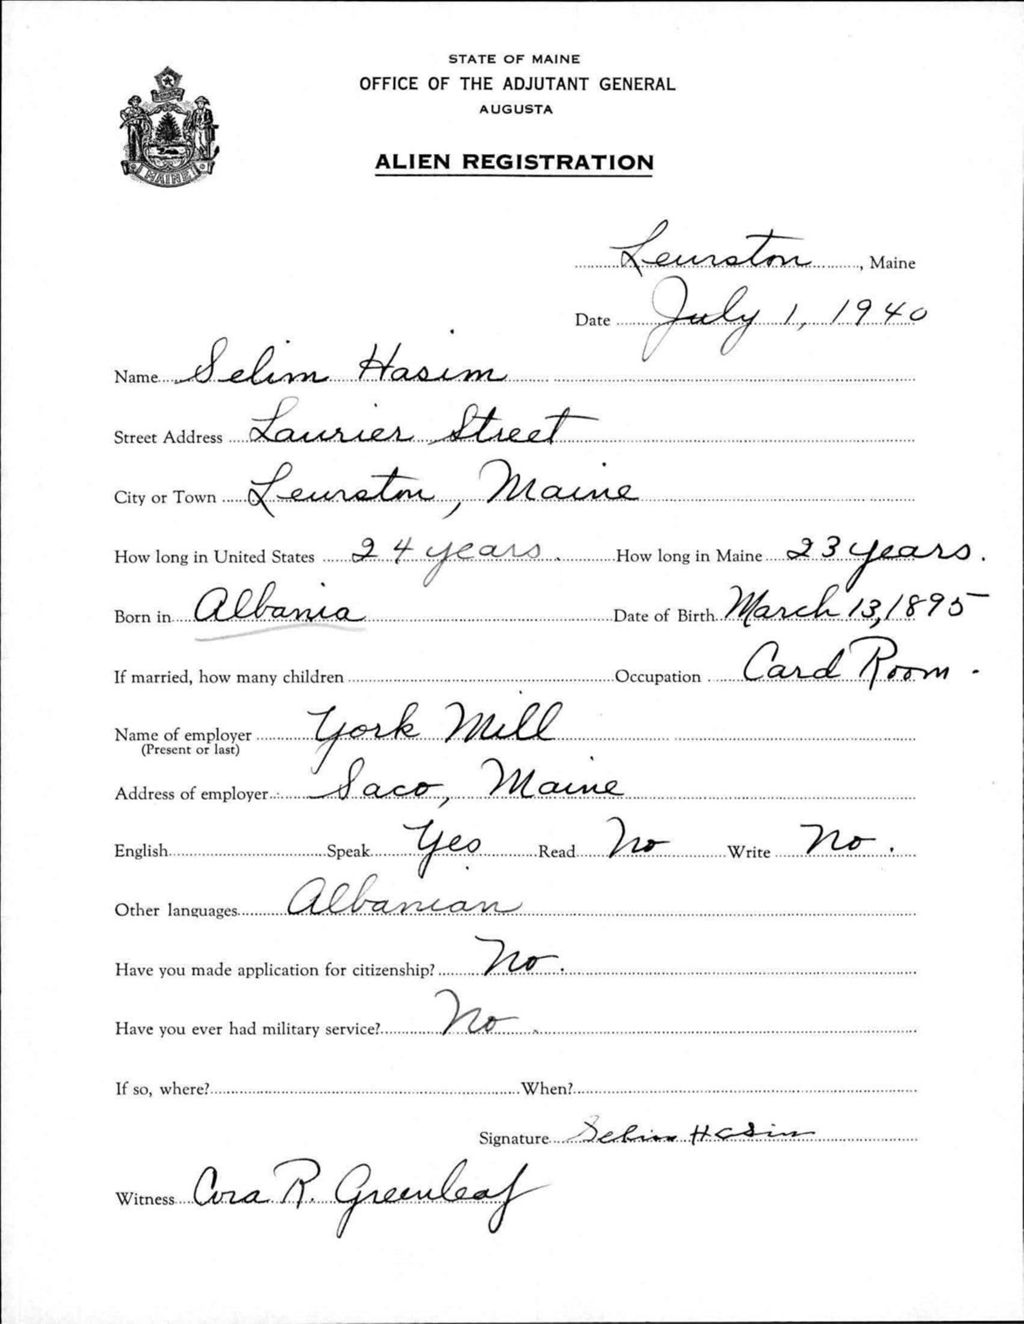 STATE OF MAINE
OFFICE OF THE ADJUTANT GENERAL
AUGUSTA
ALIEN REGISTRATION
MAINE
Lewiston, Maine
Date July 1, 1940
Name Selim Hasim
Street Address Laurier Street
City or Town Lewiston, Maine
How long in United States 24 years. How long in Maine 23 years.
Born in Albania Date of Birth March 13, 1895
If married, how many children Occupation Card Room.
Name of employer York Mill
(Present or last)
Address of employer Saco, Maine
English Speak Yes Read No Write No.
Other languages Albanian
Have you made application for citizenship? No.
Have you ever had military service? No.
If so, where? When?
Signature Selim Hasim
Witness Cora R. Greenleaf